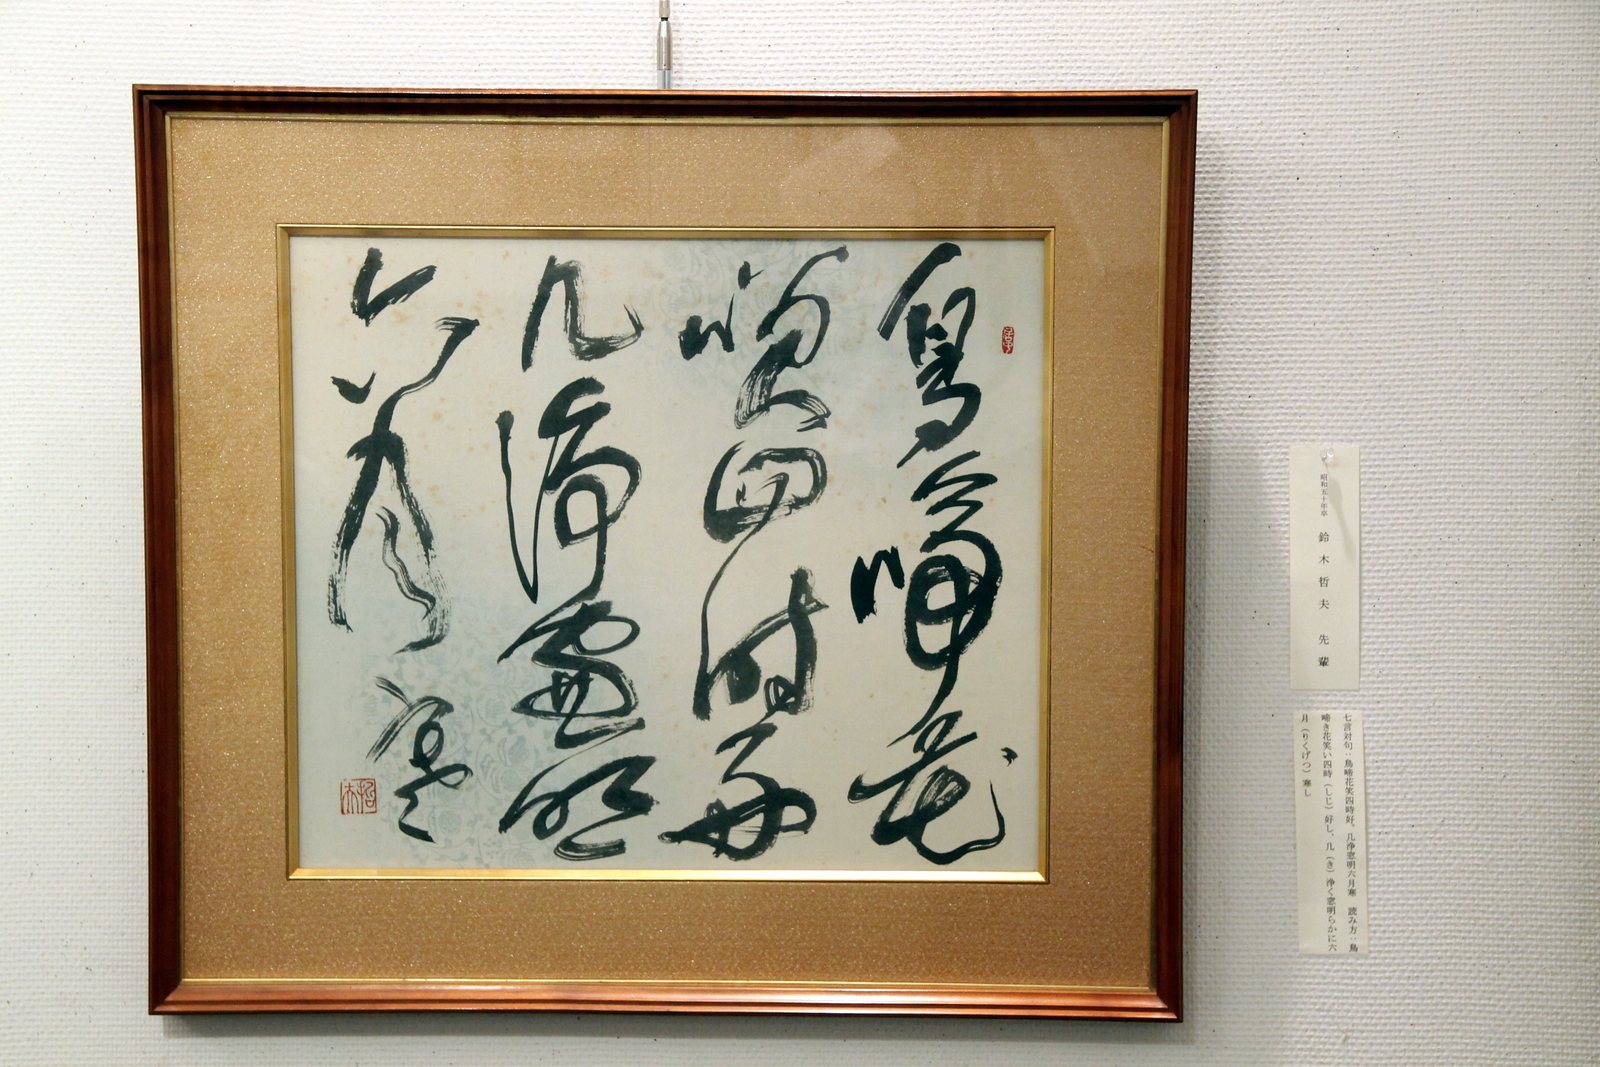 鳥啼花
咲四時好
几淨窓明
六月寒
昭和五十年卒 鈴木哲夫 先輩
七言対句：鳥啼花笑四時好。几浄窓明六月寒 読み方：鳥
啼き花笑い四時（しじ）好し、几（き）浄く窓明らかに六
月（りくげつ）寒し